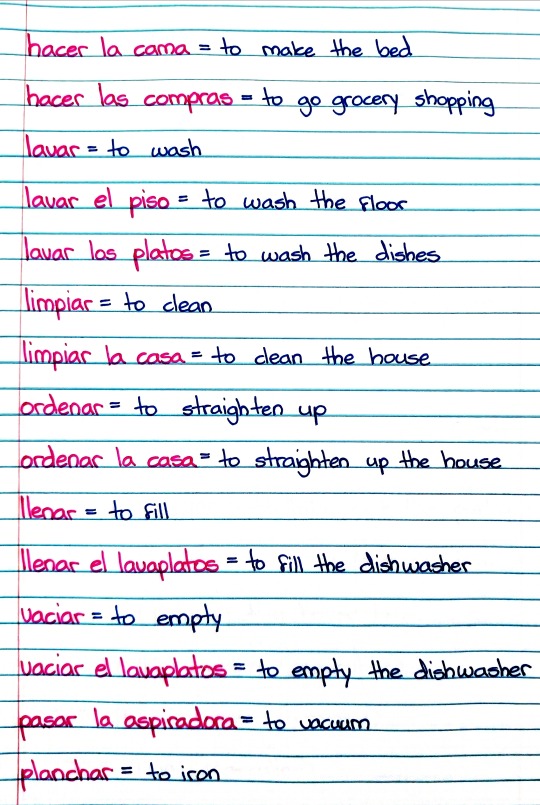 hacer la cama = to make the bed
hacer las compras = to go grocery shopping
lavar = to wash
lavar el piso = to wash the floor
lavar los platos = to wash the dishes
limpiar = to clean
limpiar la casa = to clean the house
ordenar = to straighten up
ordenar la casa = to straighten up the house
llenar = to fill
llenar el lavaplatos = to fill the dishwasher
vaciar = to empty
vaciar el lavaplatos = to empty the dishwasher
pasar la aspiradora = to vacuum
planchar = to iron